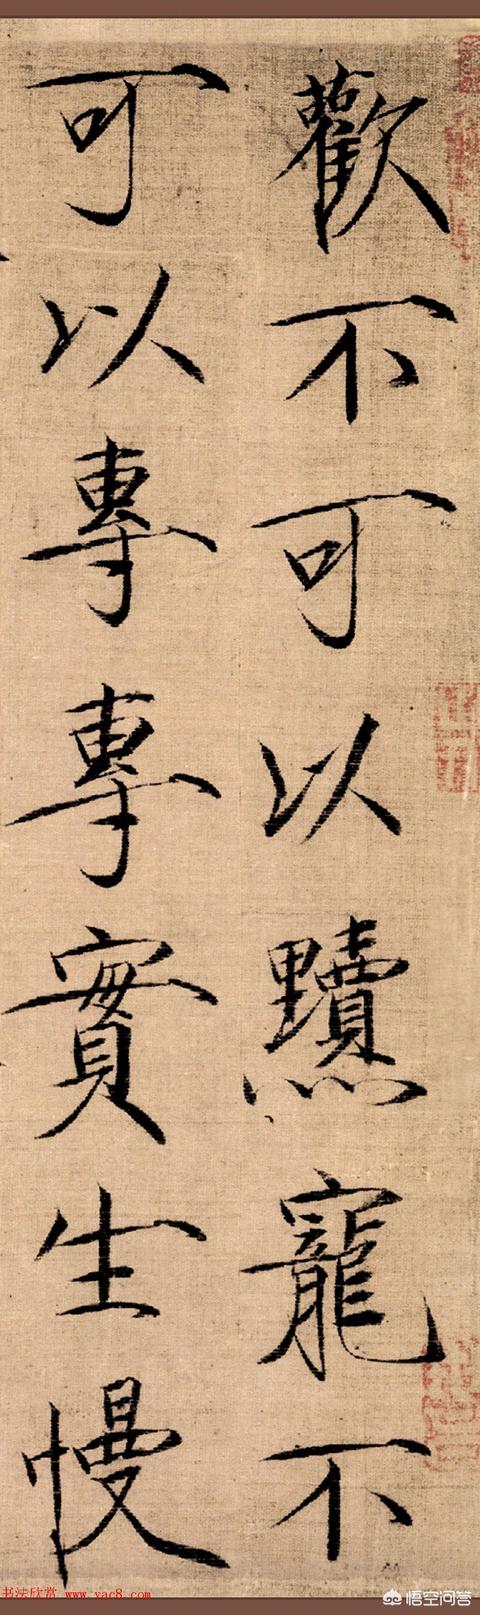 歡不可以黷寵不
可以專專實生慢
书法欣赏 www.yac8.com
悟空问答